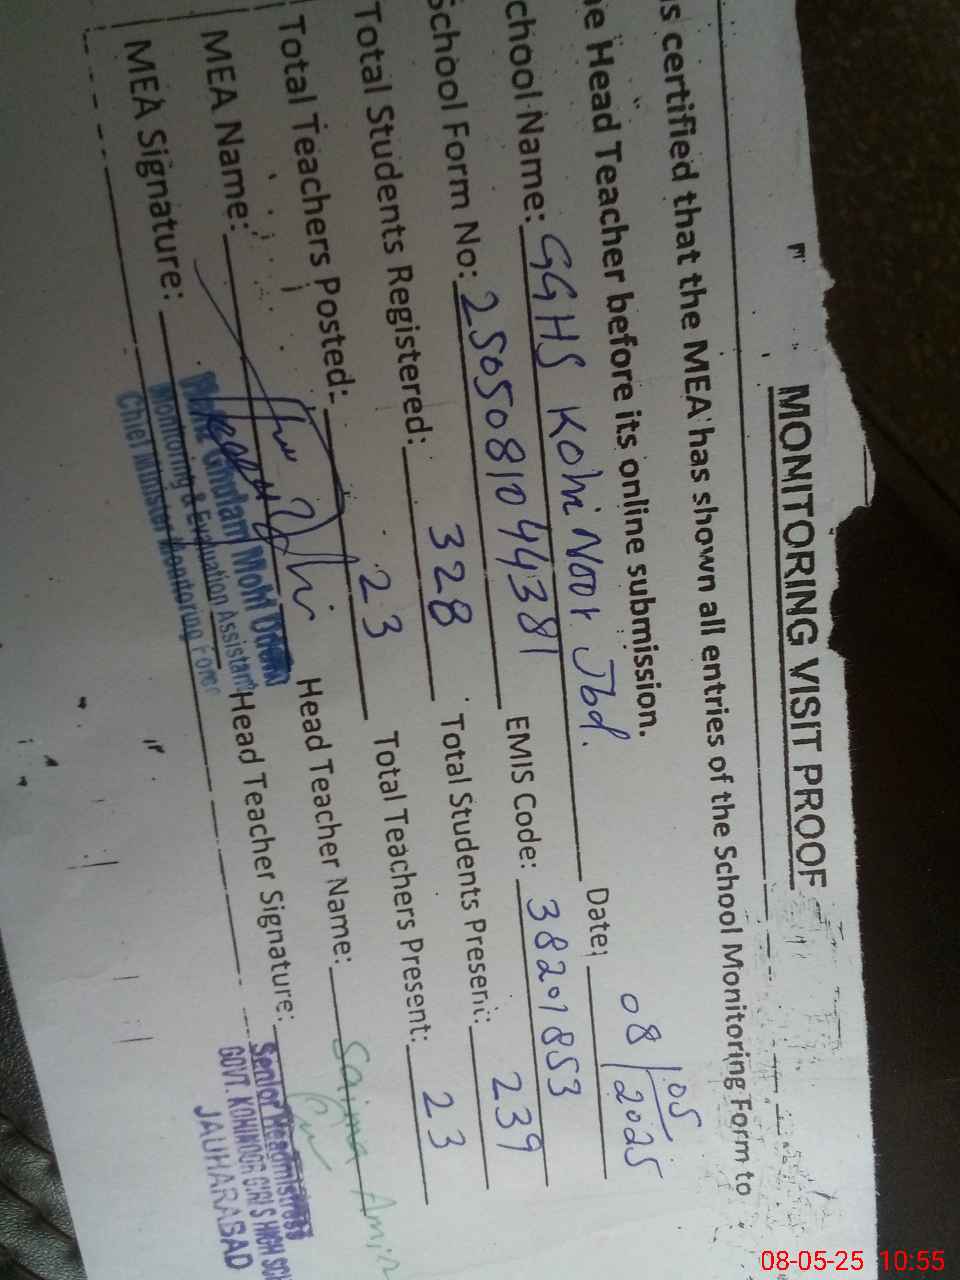 MONITORING VISIT PROOF
s certified that the MEA has shown all entries of the School Monitoring Form to
e Head Teacher before its online submission.
chool Name: GGHS Kohi Noor Jbd. Date: 08/05/2025
School Form No: 250508104438 EMIS Code: 38201853
Total Students Registered: 328 Total Students Present: 239
Total Teachers Posted: 23 Total Teachers Present: 23
MEA Name: Head Teacher Name: Saima Amin
MEA Signature: Head Teacher Signature:
Ghulam
Monitoring & Evaluation Assistant
Chief Minister Monitoring Force
Senior Headmistress
GOVT. KOHINOOR GIRLS HIGH SCH
JAUHARABAD
08-05-25 10:55